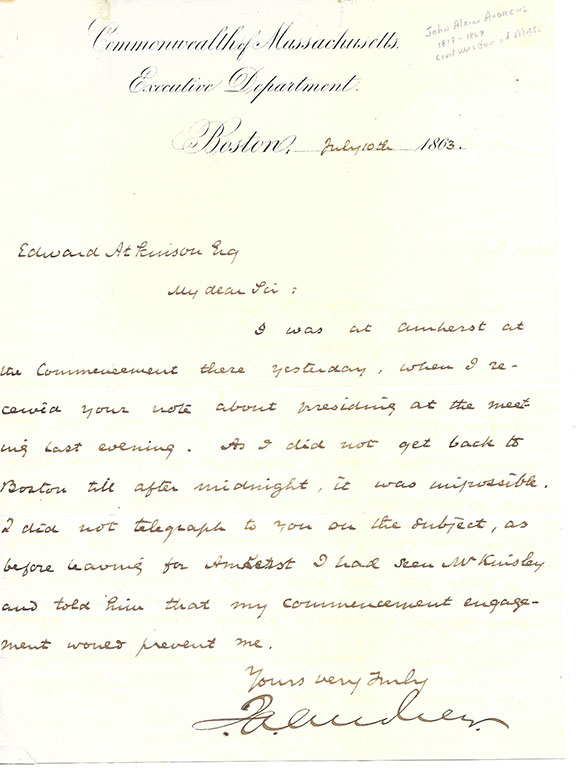 John Albion Andrews
1818 - 1867
Civil War Gov of MAS.
Commonwealth of Massachusetts.
Executive Department.
Boston, July 10th 1863.
Edward Atkinson Esq
My dear Sir :
I was at Amherst at
the Commencement there yesterday, when I re-
ceived your note about presiding at the meet-
ing last evening. As I did not get back to
Boston till after midnight, it was impossible.
I did not telegraph to you on the subject, as
before leaving for Amherst I had seen Mr Kinsley
and told him that my commencement engage-
ment would prevent me.
Yours very truly
J. A. Andrew.